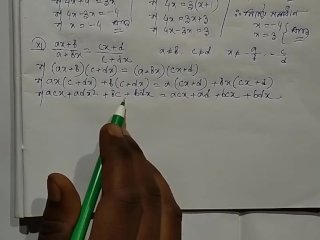 ⇒ 4x - 3x = -4
⇒ x = -4
⇒ 4x = 3(x+1)
⇒ 4x = 3x+3
⇒ 4x - 3x = 3
x = -4
x = 3
xi) (ax+b)/(a+bx) = (cx+d)/(c+dx) a≠b c≠d
⇒ (ax+b)(c+dx) = (a+bx)(cx+d)
⇒ ax(c+dx) + b(c+dx) = a(cx+d) + bx(cx+d)
⇒ acx + adx² + bc + bdx = acx + ad + bcx + bdx